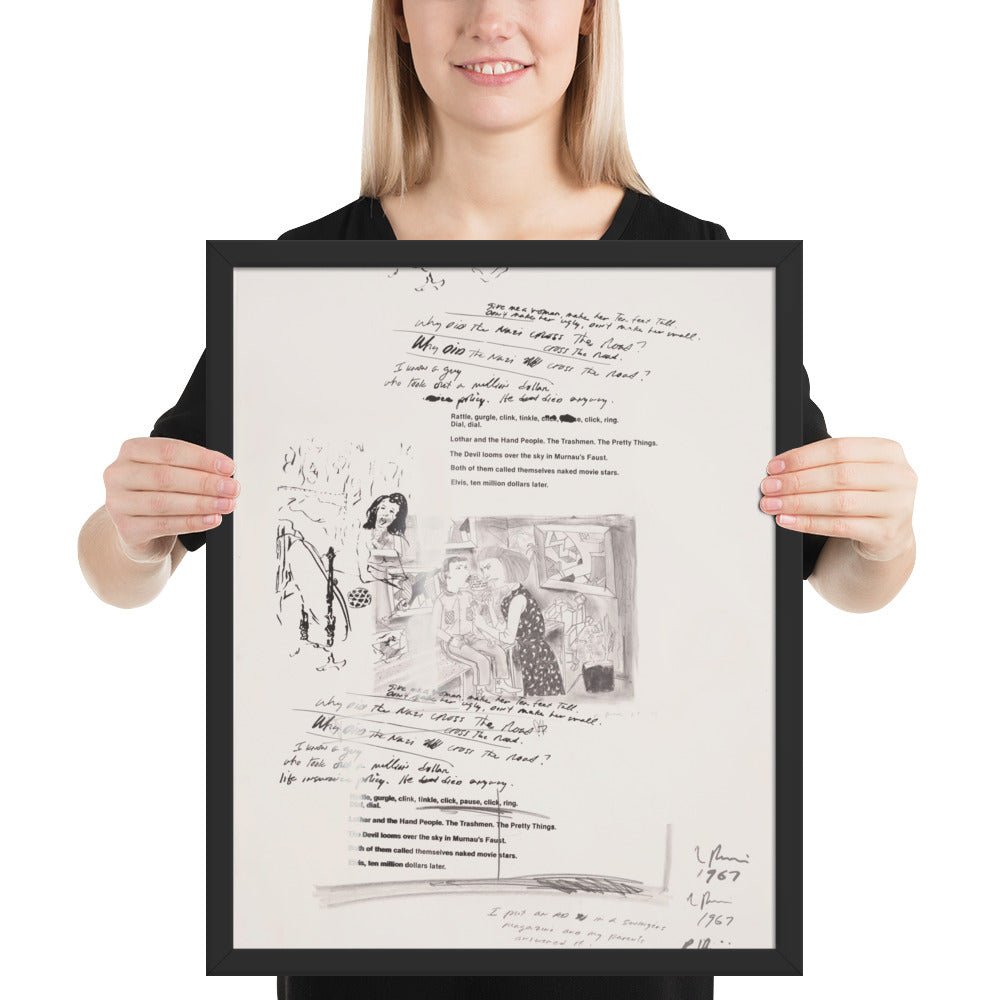 Give me a woman, make her Ten feet Tall.
Don't make her ugly, don't make her small.
Why DID The Nazi CROSS The Road?
CROSS The Road.
Why DID The Nazi CROSS The Road?
I know a guy
who took out a million dollar
policy. He died anyway.
Rattle, gurgle, clink, tinkle, click, pause, click, ring.
Dial, dial.
Lothar and the Hand People. The Trashmen. The Pretty Things.
The Devil looms over the sky in Murnau's Faust.
Both of them called themselves naked movie stars.
Elvis, ten million dollars later.
Give me a woman, make her Ten feet Tall.
Don't make her ugly, don't make her small.
Why DID The Nazi CROSS The Road?
CROSS The Road.
Why DID The Nazi CROSS The Road?
I know a guy
who took out a million dollar
life insurance policy. He died anyway.
Rattle, gurgle, clink, tinkle, click, pause, click, ring.
Dial, dial.
Lothar and the Hand People. The Trashmen. The Pretty Things.
The Devil looms over the sky in Murnau's Faust.
Both of them called themselves naked movie stars.
Elvis, ten million dollars later.
1967
1967
I put an AD in a swingers
magazine and my parents
answered it!